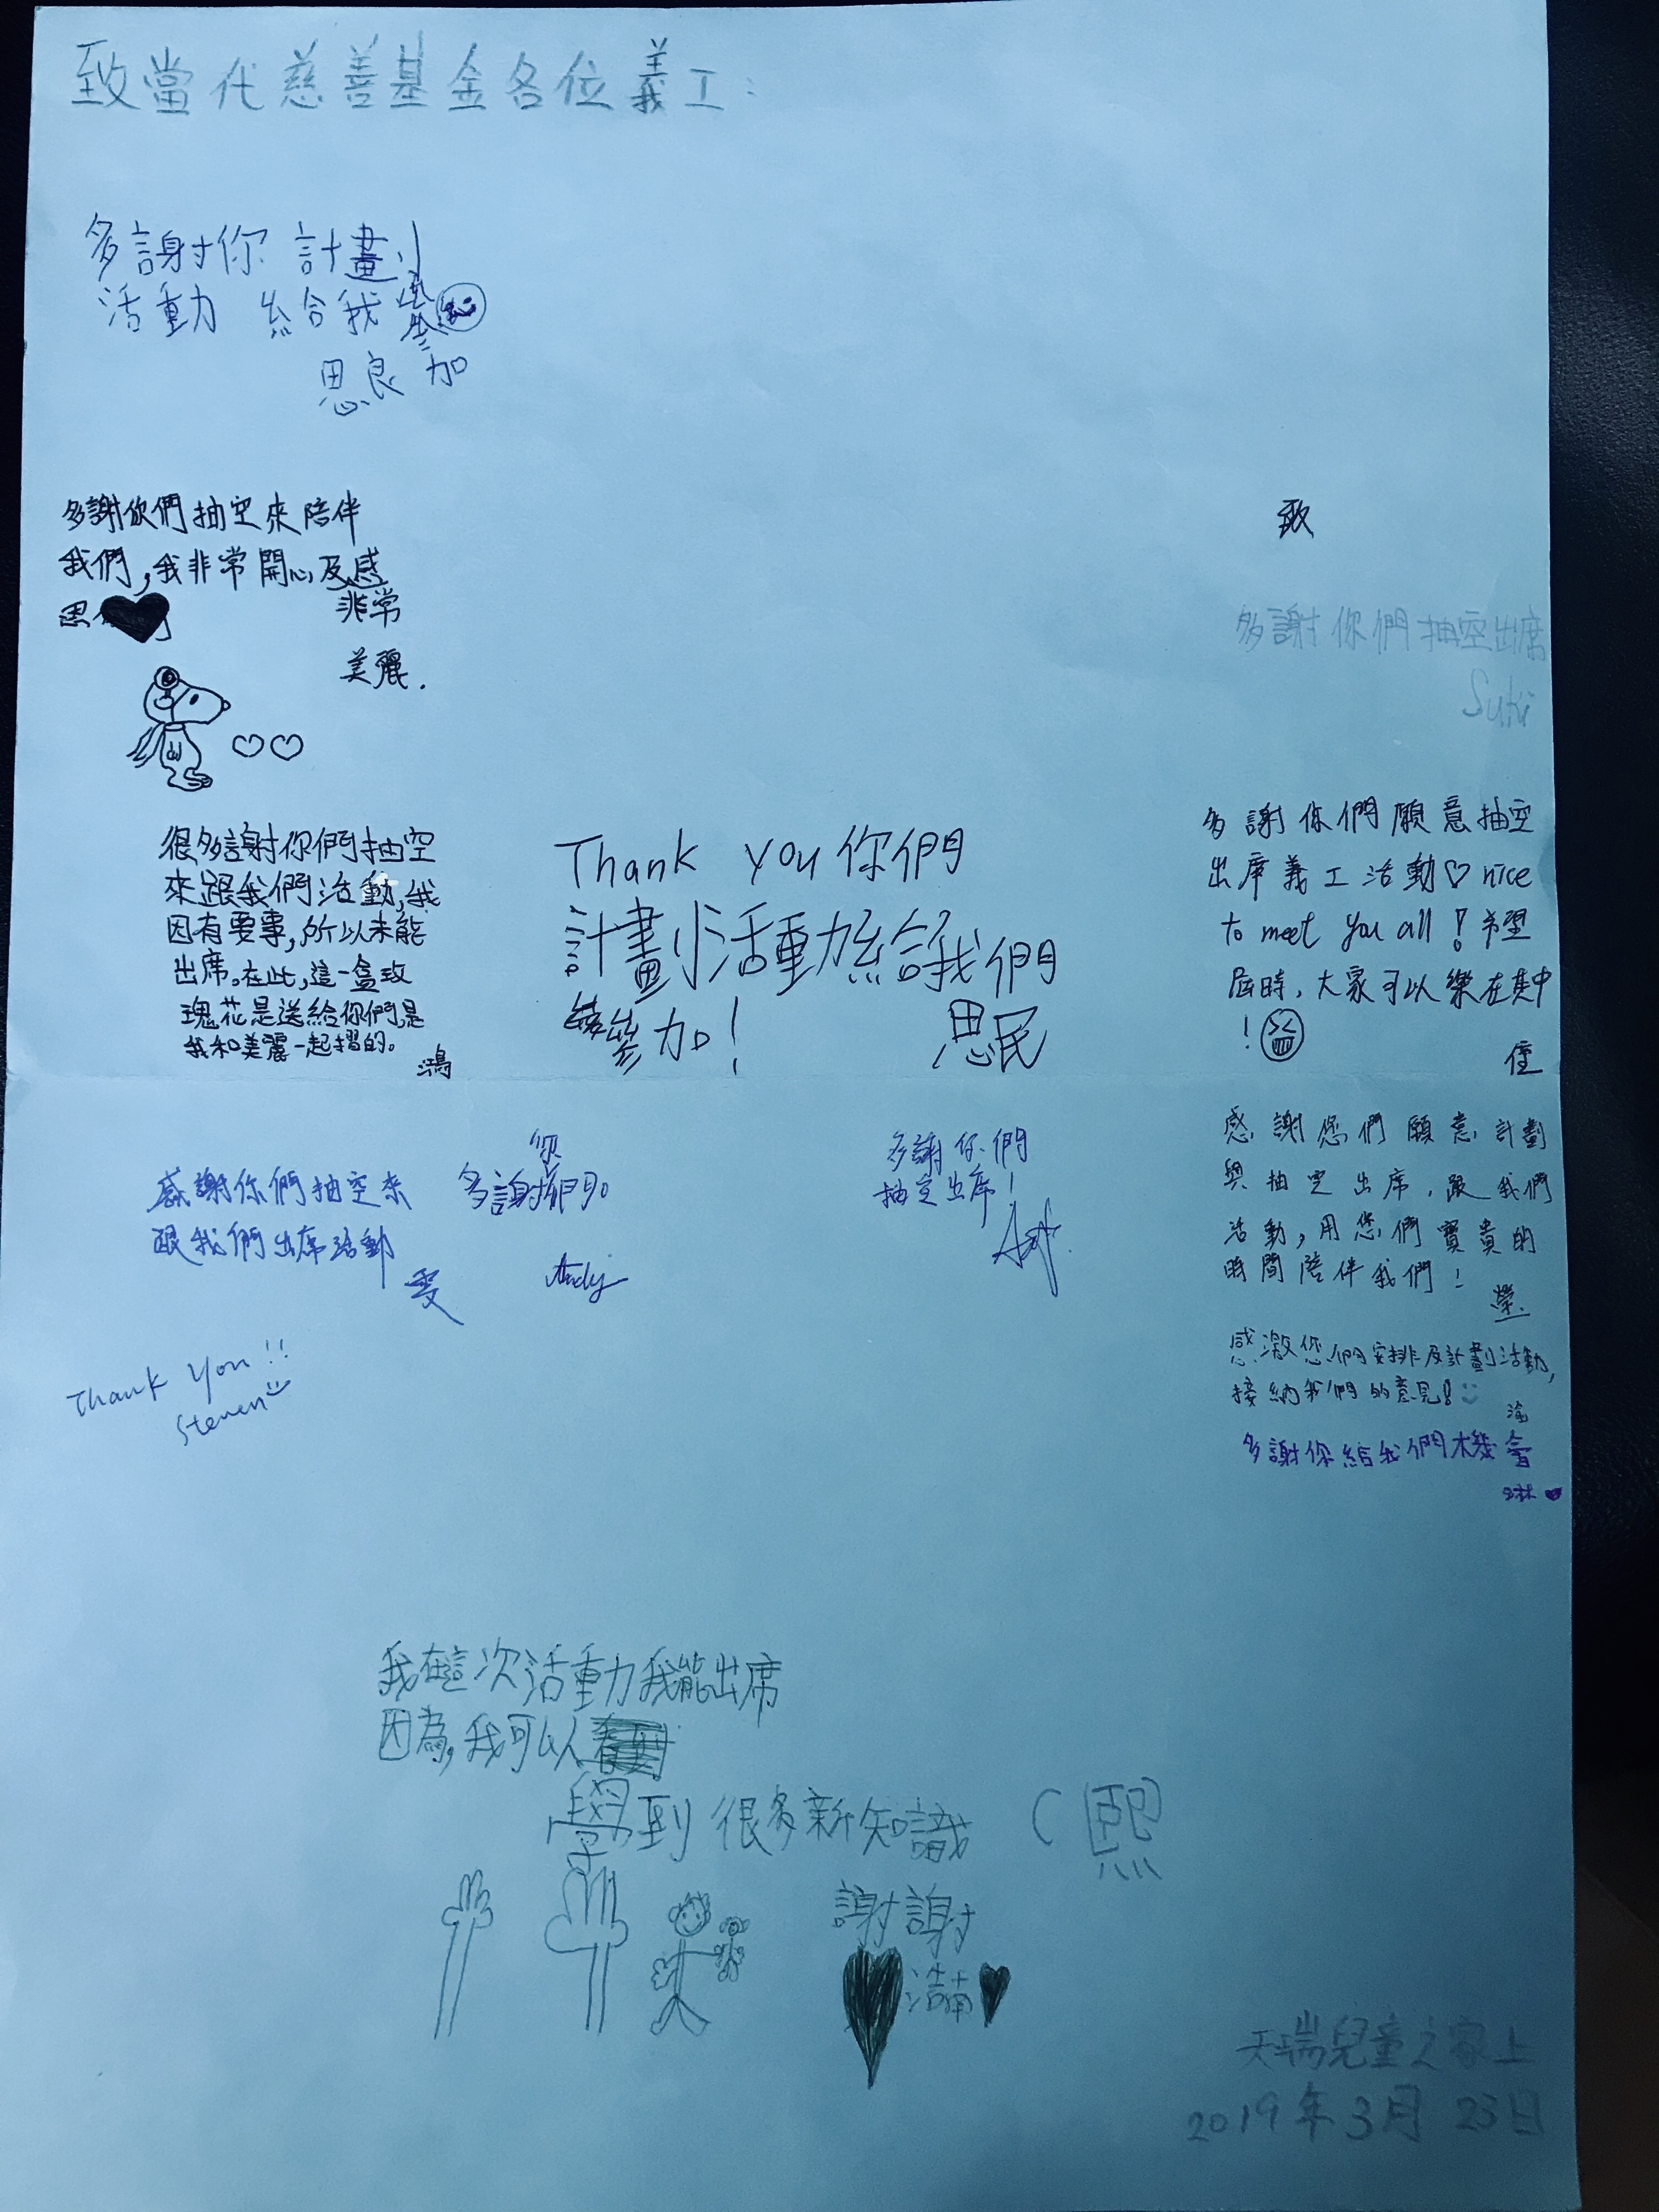 致當代慈善基金各位義工：
多謝你 計劃
活動 給我參
加
思良
多謝你們抽空來陪伴
我們，我非常開心及感
非常
恩
美麗.
很多謝你們抽空
來跟我們活動，我
因有要事，所以未能
出席。在此，這一盒玫
瑰花是送給你們，是
我和美麗一起摺的。
鴻
Thank you 你們
計劃活動給我們
參加！
思民
致
多謝你們抽空出席
Suki
多謝你們願意抽空
出席義工活動♡ nice
to meet you all！希望
屆時，大家可以樂在其中
！
感謝你們抽空來
跟我們出席活動
雯
多謝你們。
Andy
多謝你們
抽空出席！
感謝您們願意計劃
與抽空出席，跟我們
活動，用您們寶貴的
時間陪伴我們！
榮
感激您們安排及計劃活動，
接納我們的意見！
多謝你給我們機會
琳♥
Thank You!!
Steven
我在這次活動我能出席
因為，我可以
學到很多新知識
熙
謝謝
浩楠
天瑞兒童之家上
2019年3月23日